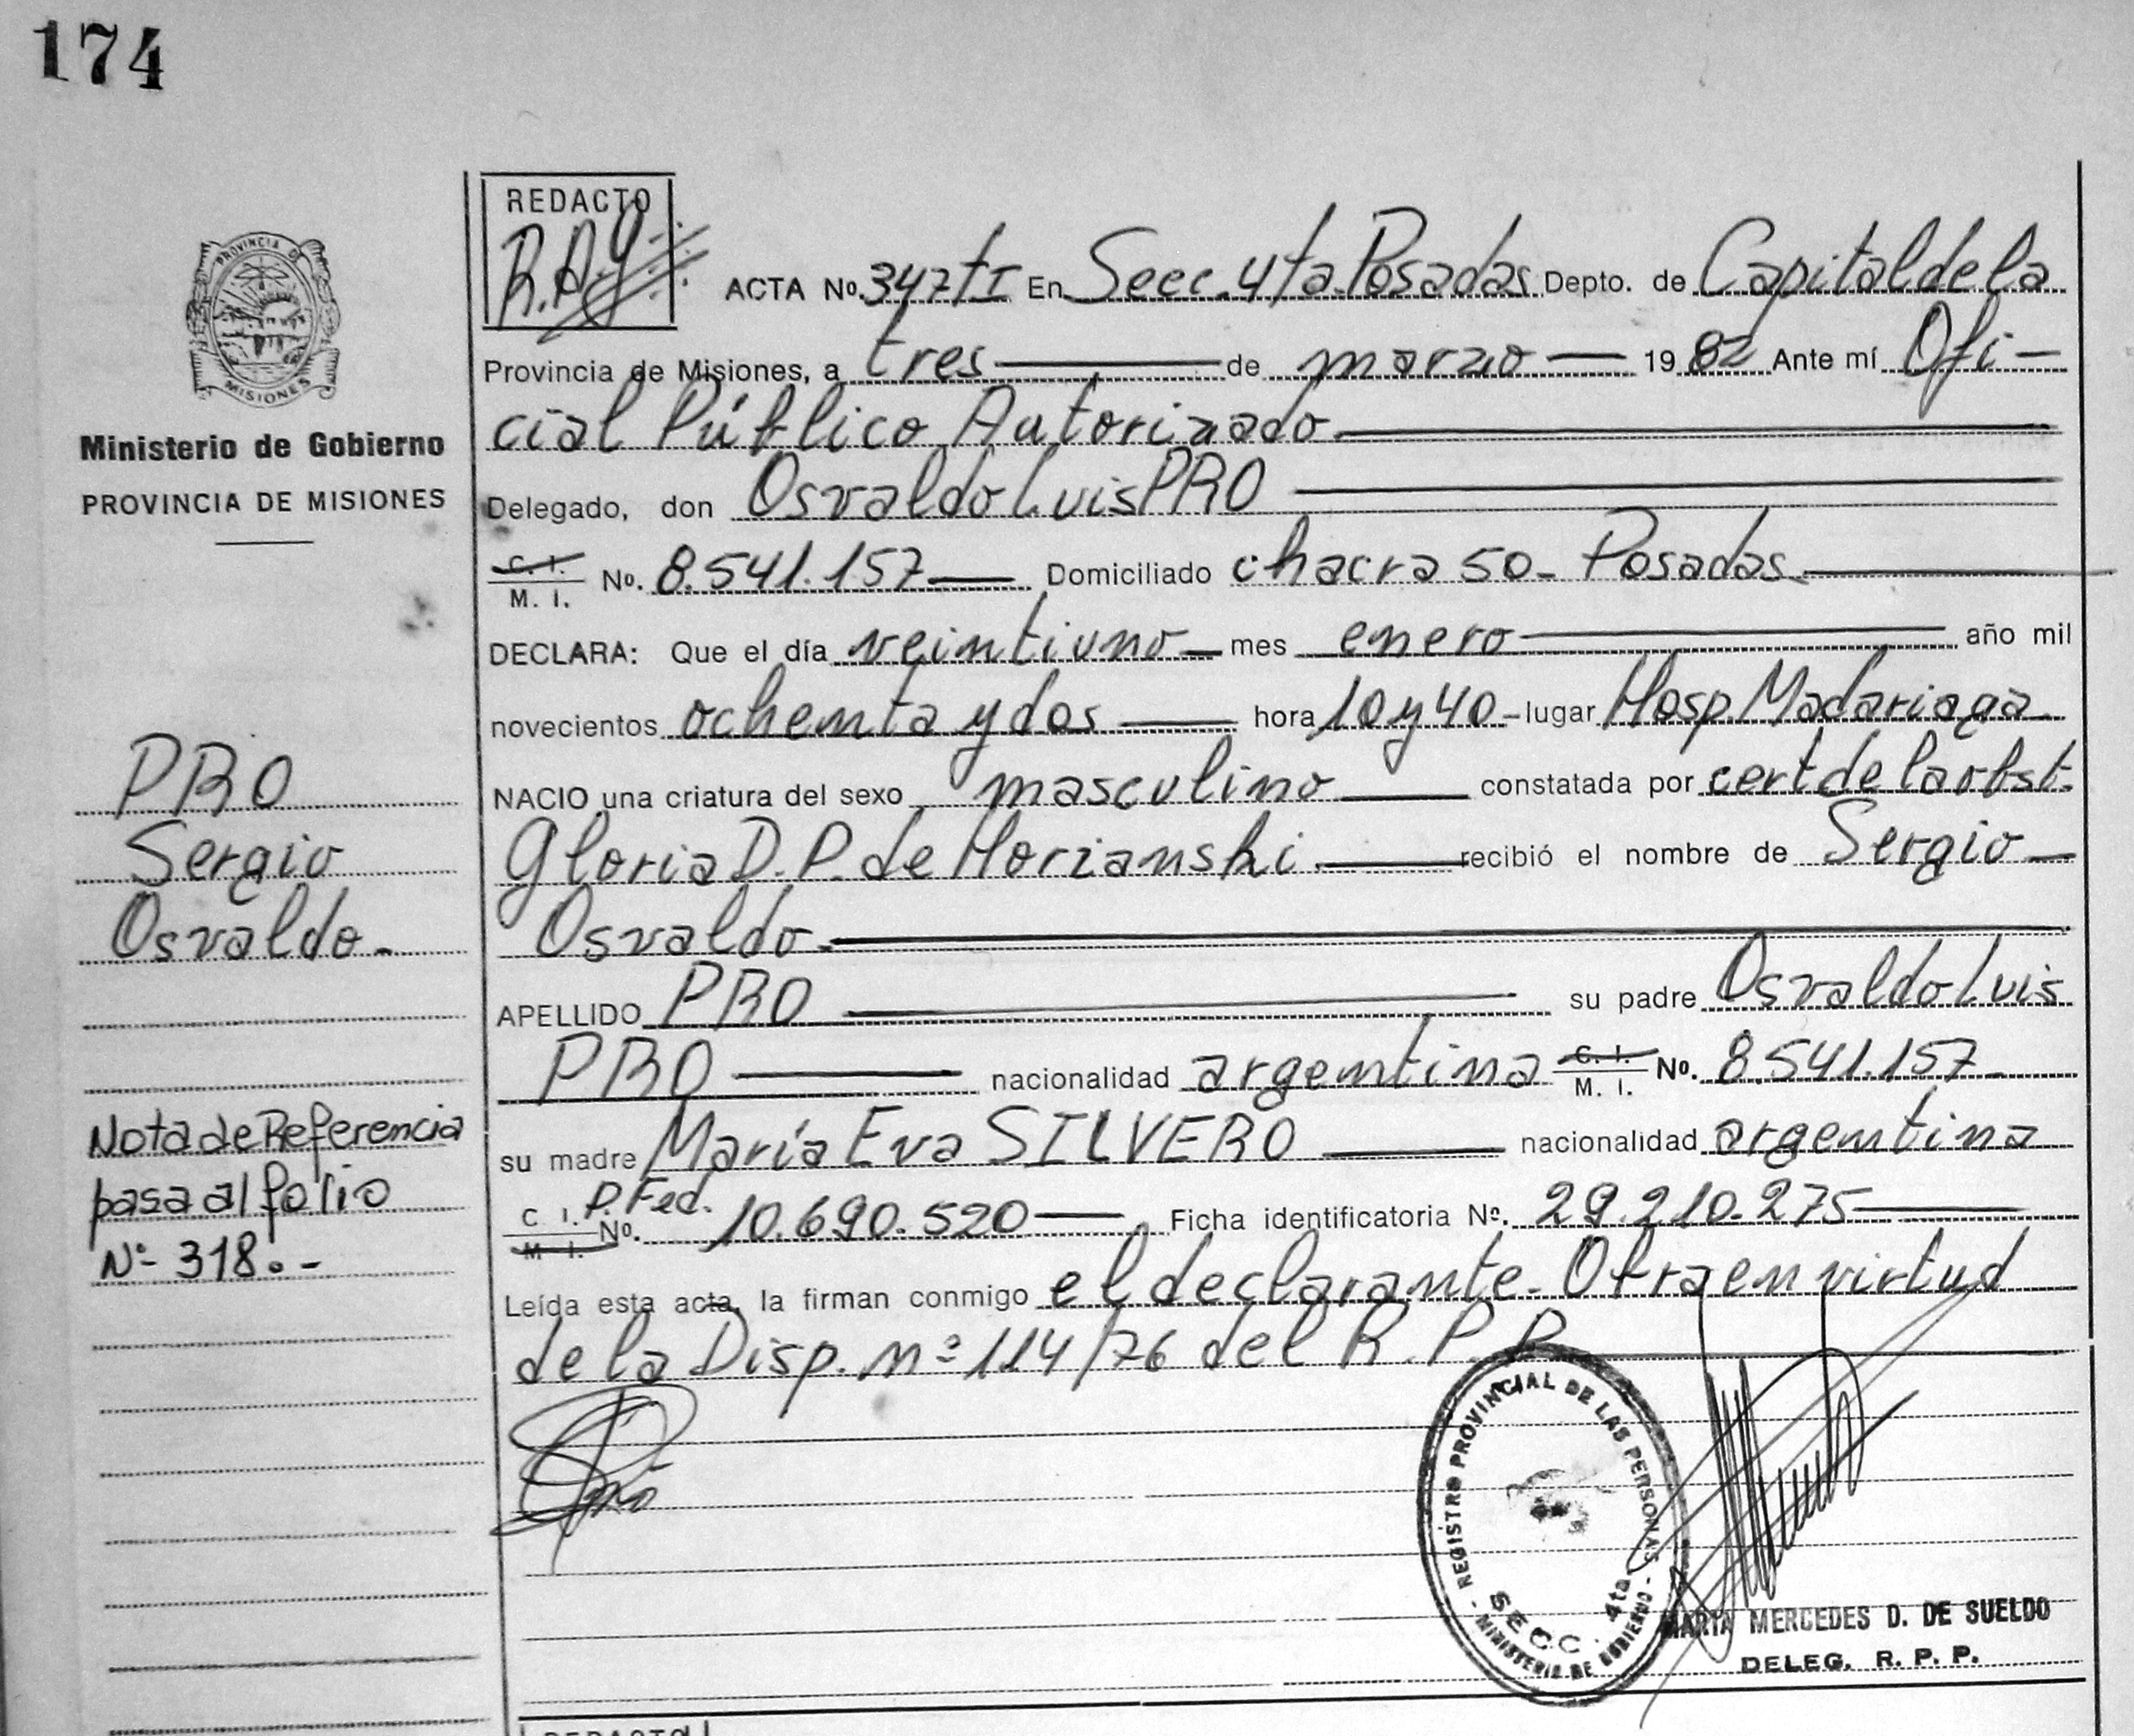 174
REDACTO
PROVINCIA DE
MISIONES
Ministerio de Gobierno
PROVINCIA DE MISIONES
ACTA No. 347 tI En Secc. 4ta Posadas Depto. de Capital de la
Provincia de Misiones, a tres de marzo 1982 Ante mí Ofi-
cial Público Autorizado
Delegado, don Osvaldo Luis PRO
C. I.
M. I. No. 8.541.157 Domiciliado chacra 50- Posadas
DECLARA: Que el día veintiuno mes enero año mil
novecientos ochenta y dos hora 10 y 40 - lugar Hosp. Madariaga
NACIO una criatura del sexo masculino constatada por cert de la obst.
Gloria D. P. de Horianski recibió el nombre de Sergio
Osvaldo
APELLIDO PRO su padre Osvaldo Luis
PRO nacionalidad argentina C. I.
M. I. No. 8.541.157
su madre María Eva SILVERO nacionalidad argentina
C I. P. Fed.
M I. No. 10.690.520 Ficha identificatoria No. 29.210.275
Leída esta acta, la firman conmigo el declarante. Obra en virtud
de la Disp. nº 114/76 del R. P. P.
PRO
Sergio
Osvaldo-
Nota de Referencia
pasa al folio
Nº 318.-
REGISTRO PROVINCIAL DE LAS PERSONAS
- MINISTERIO DE GOBIERNO -
SECC. 4ta
MARIA MERCEDES D. DE SUELDO
DELEG. R. P. P.
REDACTO